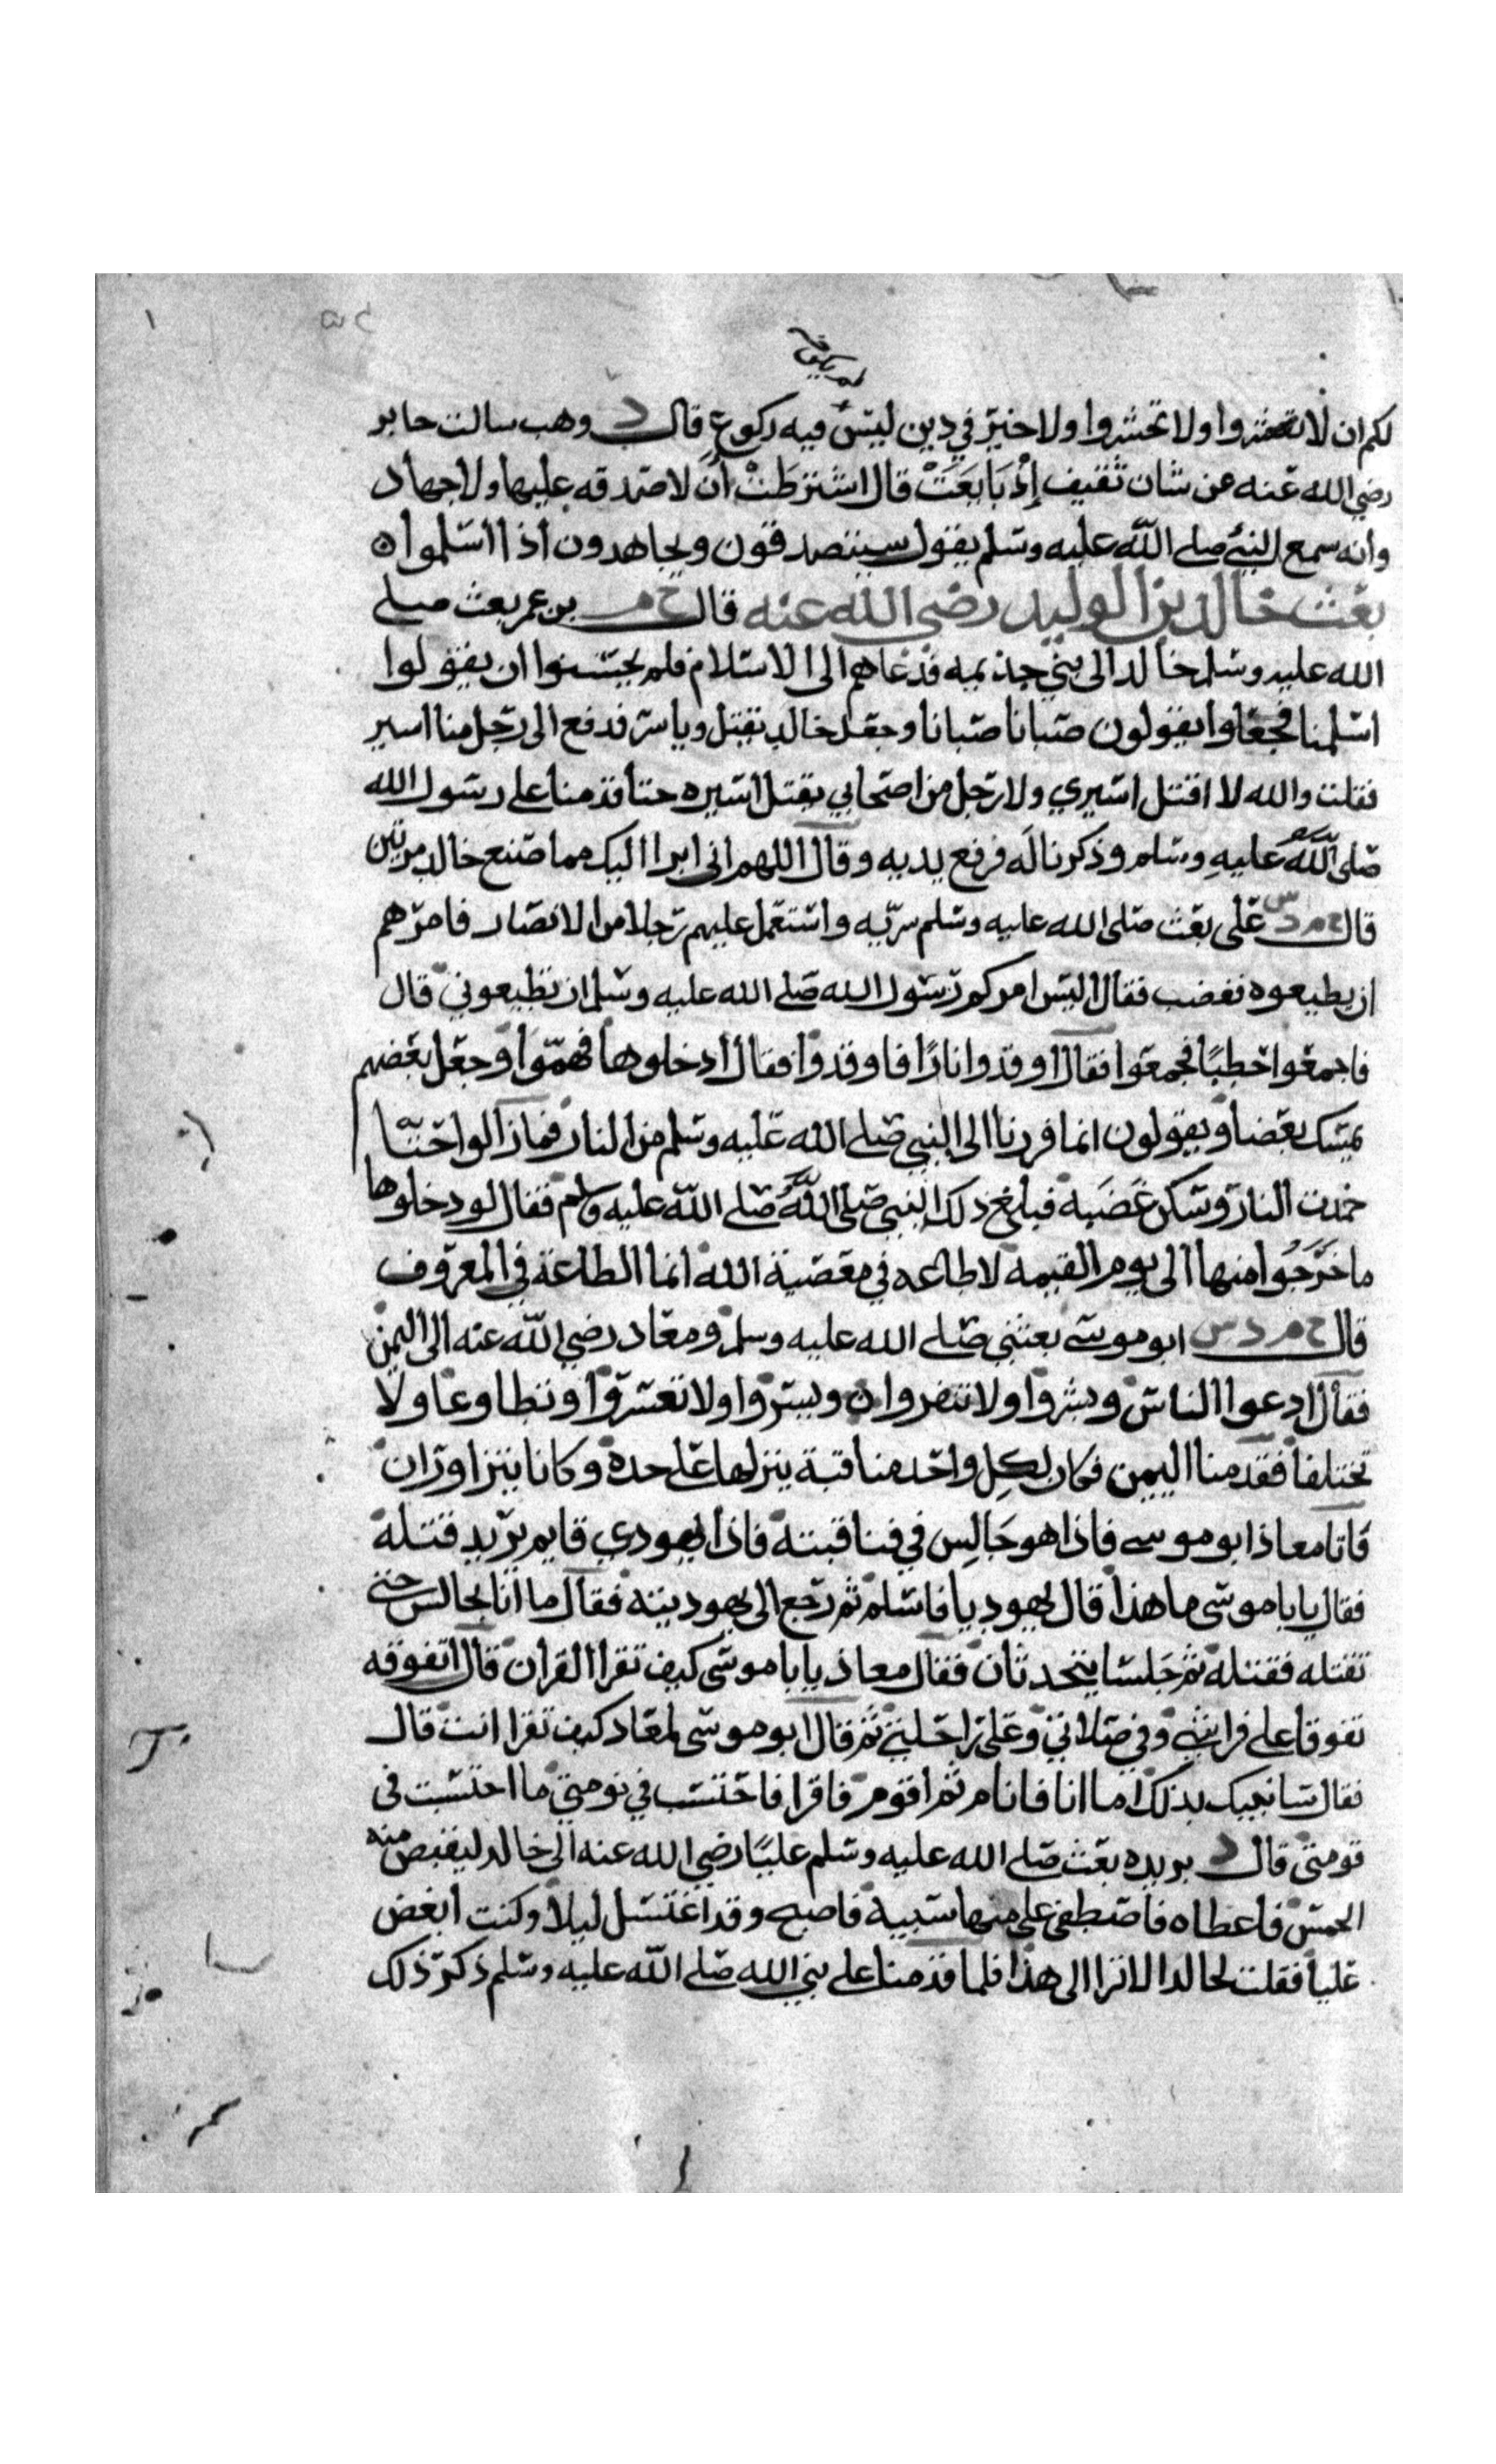 لكم ان لا تحشروا ولا تعشروا ولا خير في دين ليس فيه ركوع قال د وهب سالت جابر
رضي الله عنه عن شان ثقيف إذ بايعت قال اشترطت أن لا صدقه عليها ولا جهاد
وانه سمع النبي صلى الله عليه وسلم يقول سيتصدقون ويجاهدون اذا أسلموا ه
بعث خالد بن الوليد رضي الله عنه قال خ م بن عمر بعث صلى
الله عليه وسلم خالد الى بني جذيمه فدعاهم الى الاسلام فلم يحسنوا ان يقولوا
اسلمنا فجعلوا يقولون صبانا صبانا وجعل خالد يقتل وياسر فدفع الى رجل منا اسير
فقلت والله لا اقتل اسيري ولا رجل من اصحابي يقتل اسيره حتا قدمنا على رسول الله
صلى الله عليه وسلم وذكرنا له فرفع يديه وقال اللهم انى ابرا اليك مما صنع خالد مرتين
قال خ م د س على بعث صلى الله عليه وسلم سريه واستعمل عليهم رجلا من الانصار فامرهم
ان يطيعوه فغضب فقال اليس امركم رسول الله صلى الله عليه وسلم ان تطيعوني قال
فاجمعوا حطبًا فجمعوا فقال اوقدوا نارًا فاوقدوا فقال ادخلوها فهمّوا وجعل بعضهم
يمسك بعضا ويقولون انما فررنا الى النبي صلى الله عليه وسلم من النار فما زالوا حتا
خمدت النار وسكن غضبه فبلغ ذلك النبي صلى الله صلى الله عليه وسلم فقال لو دخلوها
ما خرجوا منها الى يوم القيمه لا طاعه في معصية الله انما الطاعة في المعروف
قال خ م د س ابو موسى بعثني صلى الله عليه وسلم ومعاد رضي الله عنه الى اليمن
فقال ادعوا الناس وبشروا ولا تنفروا ن ويسروا ولا تعسروا وتطاوعا ولا
تختلفا فقدمنا اليمن فكان لكل واحد منا قبة ينزلها على حدة وكانا يتزاوران
فاتا معاذ ابو موسى فاذا هو جالس في فنا قبته فاذا يهودي قايم يريد قتله
فقال يابا موسى ما هذا قال يهوديا فاسلم ثم رجع الى يهوديته فقال ما انا بجالس حتى
تقتله فقتله ثم جلسا يتحدثان فقال معاذ يابا موسى كيف تقرا القران قال اتفوقه
تفوقا على فراشي وفي صلاتي وعلى راحلتي ثم قال ابو موسى لمعاد كيف تقرا انت قال
فقال سانبيك بذلك اما انا فانام ثم اقوم فاقرا فاحتسب في نومتي ما احتسب فى
قومتى قال د بريده بعث صلى الله عليه وسلم عليًا رضي الله عنه الى خالد ليقبض منه
الخمس فاعطاه فاصطفى على منها سبية فاصبح وقد اغتسل ليلا وكنت ابغض
عليا فقلت لخالد الا ترا الى هذا فلما قدمنا على نبي الله صلى الله عليه وسلم ذكر ذلك